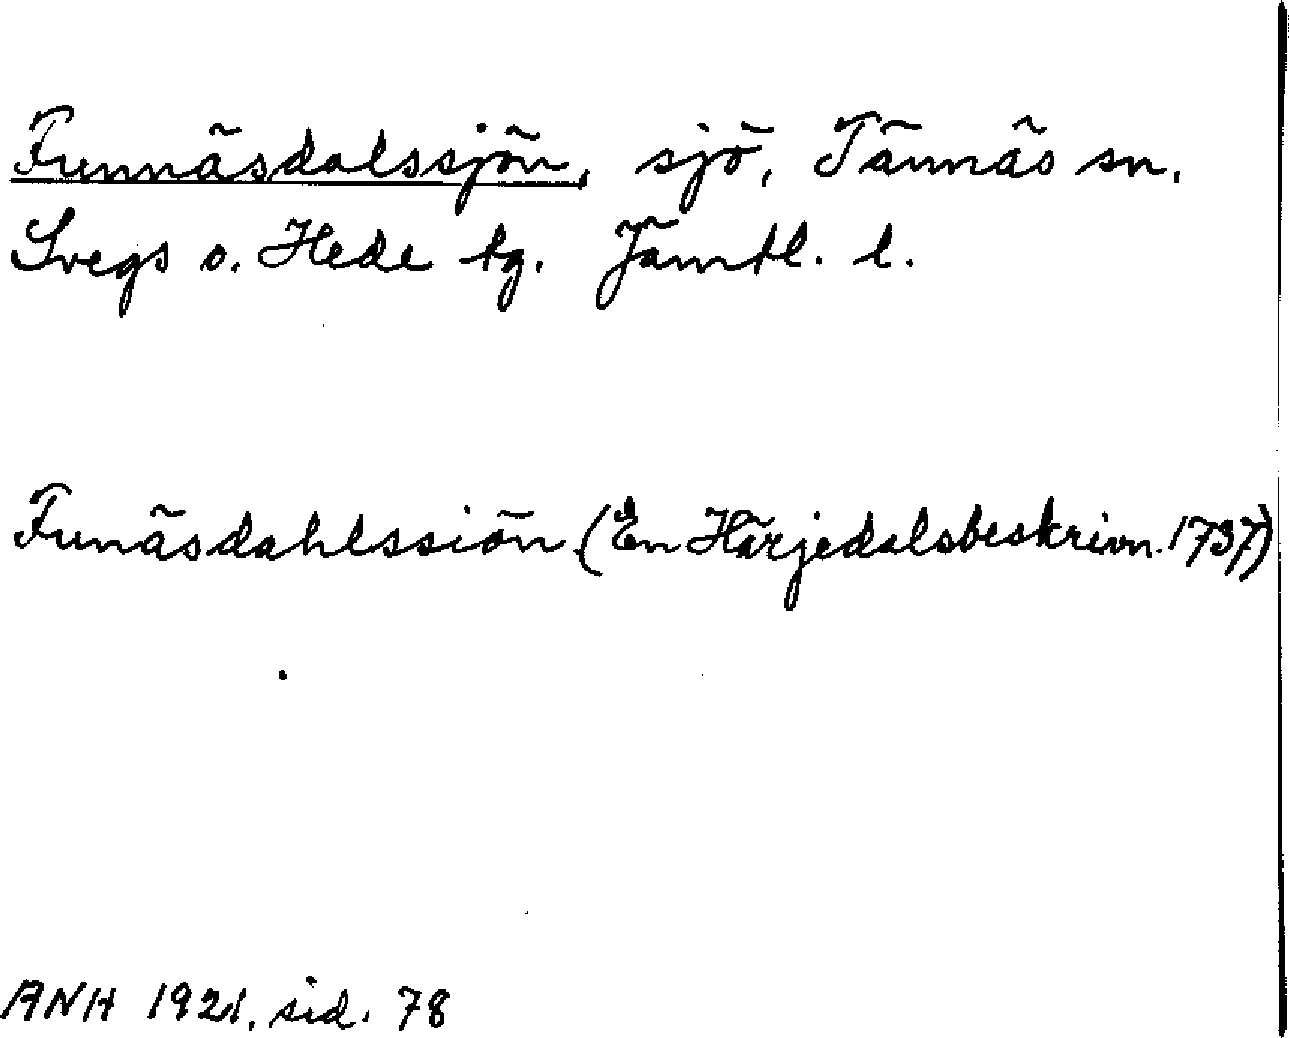 Funnäsdalssjön, sjö, Tännäs sn.
Svegs o. Hede tg. Jämtl. l.
Funäsdahlssiön (En Härjedalsbeskrivn. 1737)
ANH 1921, sid. 78